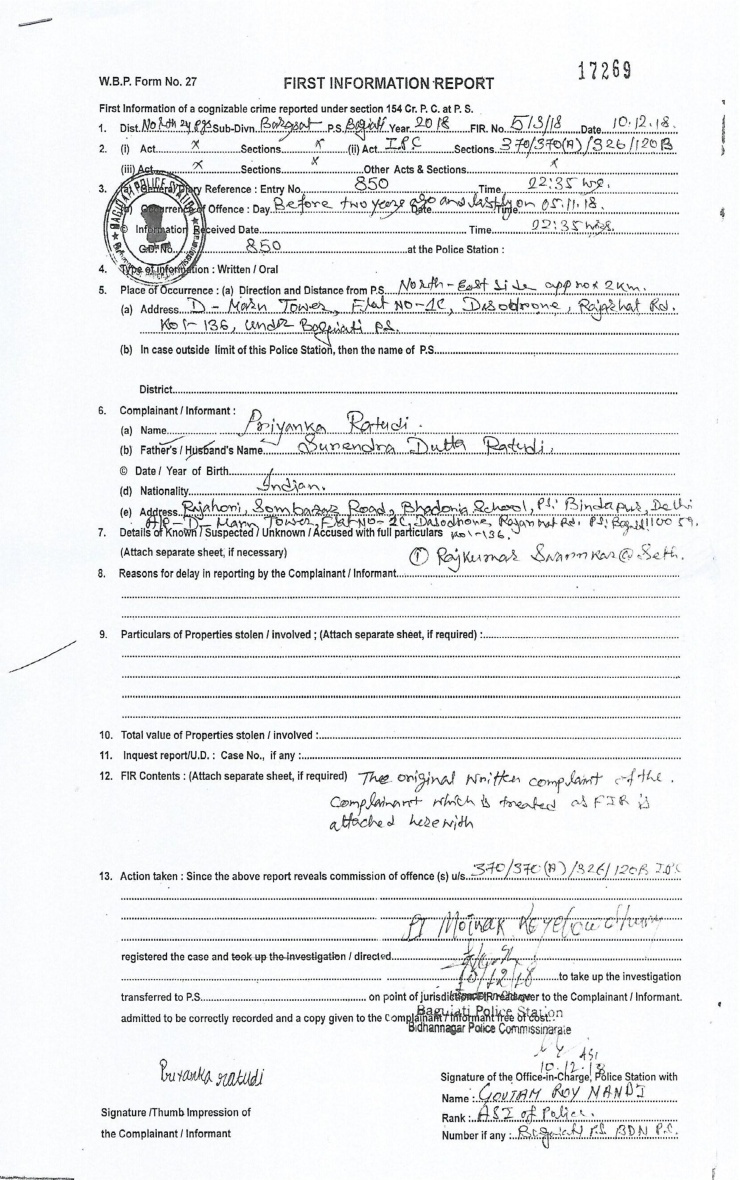 17269
W.B.P. Form No. 27 FIRST INFORMATION REPORT
First Information of a cognizable crime reported under section 154 Cr. P. C. at P. S.
1. Dist. North 24 pgs Sub-Divn. Barasat P.S. Baguiati Year 2018 FIR. No. 513/18 Date 10.12.18.
2. (i) Act x Sections x (ii) Act IPC Sections 370/370(A)/326/120B
(iii) Act x x Other Acts & Sections x
3. General Diary Reference : Entry No. 850 Time 22:35 hrs.
Occurrence of Offence : Day Before two years ago and lastly on 05.11.18. Date Time
© Information Received Date Time 22:35 hrs.
G.D. No. 850 at the Police Station :
BAGUIATI POLICE STATION
4. Type of information : Written / Oral
5. Place of Occurrence : (a) Direction and Distance from P.S. North-East side approx 2 km.
(a) Address D-Mann Tower, Flat NO-1C, Dasodrone, Rajarhat Rd.
Kol-136, under Baguiati P.S.
(b) In case outside limit of this Police Station, then the name of P.S.
District
6. Complainant / Informant :
(a) Name Priyanka Ratudi.
(b) Father's / Husband's Name Surendra Dutta Ratudi,
© Date / Year of Birth
(d) Nationality Indian.
(e) Address Rajahori, Sombazar Road, Bhadonia School, PS: Bindapur, Delhi
A/P- D-Mann Tower, Flat NO-2C, Dasodhone, Rajarhat Rd. PS: 110059.
7. Details of Known / Suspected / Unknown / Accused with full particulars Kol-136.
(Attach separate sheet, if necessary) ① Rajkumar Swarnkar @ Seth.
8. Reasons for delay in reporting by the Complainant / Informant
9. Particulars of Properties stolen / involved ; (Attach separate sheet, if required) :
10. Total value of Properties stolen / involved :
11. Inquest report/U.D. : Case No., if any :
12. FIR Contents : (Attach separate sheet, if required) The original written complaint of the
Complainant which is treated as FIR is
attached herewith
13. Action taken : Since the above report reveals commission of offence (s) u/s. 370/370(A)/326/120B IPC
PI Moinak
registered the case and took up the investigation / directed
10/12/18 to take up the investigation
transferred to P.S. on point of jurisdiction FIR read over to the Complainant / Informant.
admitted to be correctly recorded and a copy given to the Complainant / Informant free of cost.
Baguiati Police Station
Bidhannagar Police Commissionarate
ASI
10.12.18
Priyanka ratudi
Signature of the Office-in-Charge, Police Station with
Name : GOUTAM ROY MANDI
Signature /Thumb Impression of Rank : ASI of Police.
the Complainant / Informant Number if any : Baguiati PS BDN P.C.